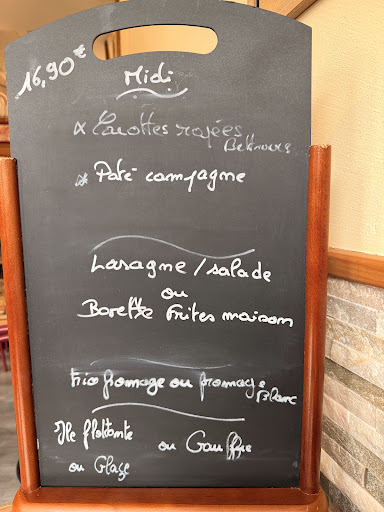 16,90€
Midi
x Carottes rapées
Betteraves
x Paté campagne
Lasagne / salade
ou
Bavette frites maison
trio fromage ou fromage
Blanc
Ile flottante ou Gauffre
ou Glaçe